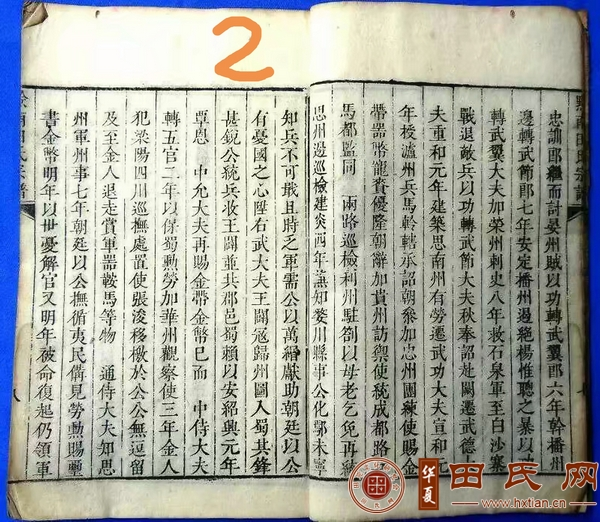 2
黔南田氏宗譜
忠訓郎繼而討晏州賊以功轉武翼郎六年幹播州
邊轉武節郎七年安定播州邊絕楊惟聰之暴以功
轉武翼大夫加榮州刺史八年救石泉軍至白沙寨
戰退敵兵以功轉武節大夫秋奉詔赴闕遷武德大
夫重和元年建築思南州有勞遷武功大夫宣和元
年授瀘州兵馬鈐轄承詔朝參加忠州團練使賜金
帶器幣龍賚優隆朝辭加貴州訪禦使統成都路兵
馬都監同 兩路巡檢利州駐劄以母老乞免再統
思州邊巡檢建炎四年兼知婺川縣事公化鄂未寧
知兵不可戢且時之軍需公以萬緡獻助朝廷以公
有憂國之心陞右武大夫王闢寇歸州圖入蜀其鋒
甚銳公統兵收王闢並共郡邑蜀賴以安紹興元年
覃恩 中允大夫再賜金帶金幣巳而 中侍大夫
轉五官二年以保蜀勲勞加華州觀察使三年金人
犯梁陽四川巡撫處置使張浚移檄於公公無逗留
及至金人退走賞軍器鞍馬等物 通侍大夫知思
州軍州事七年朝廷以公撫循夷民備見勞勲賜璽
書金幣明年以丗憂解官又明年被命復起仍領軍
黔南田氏宗譜
八
華夏
田氏网
www.hxtian.cn